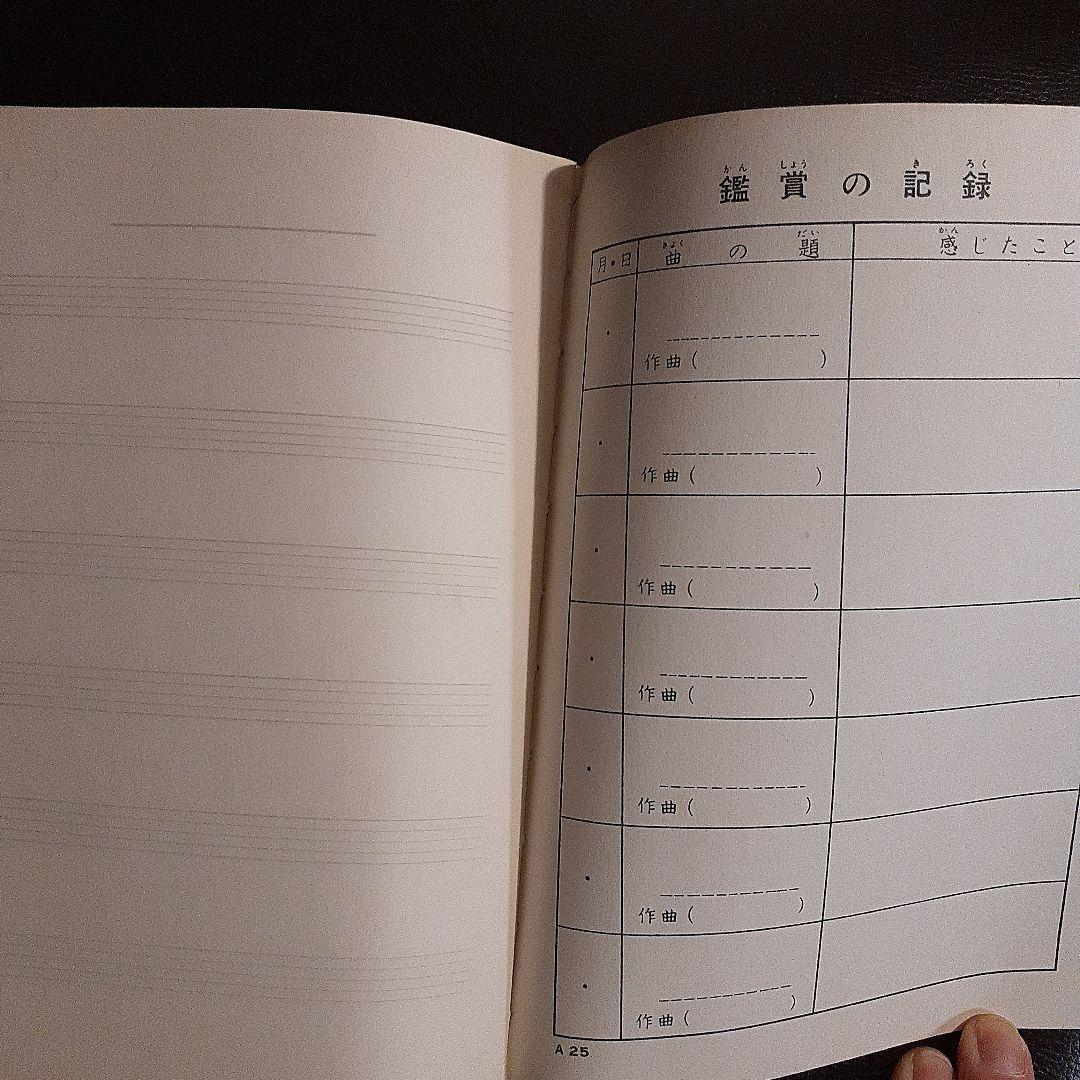 鑑賞の記録
月・日 曲の題 感じたこと
・
作曲( )
・
作曲( )
・
作曲( )
・
作曲( )
・
作曲( )
・
作曲( )
・
作曲( )
A 25